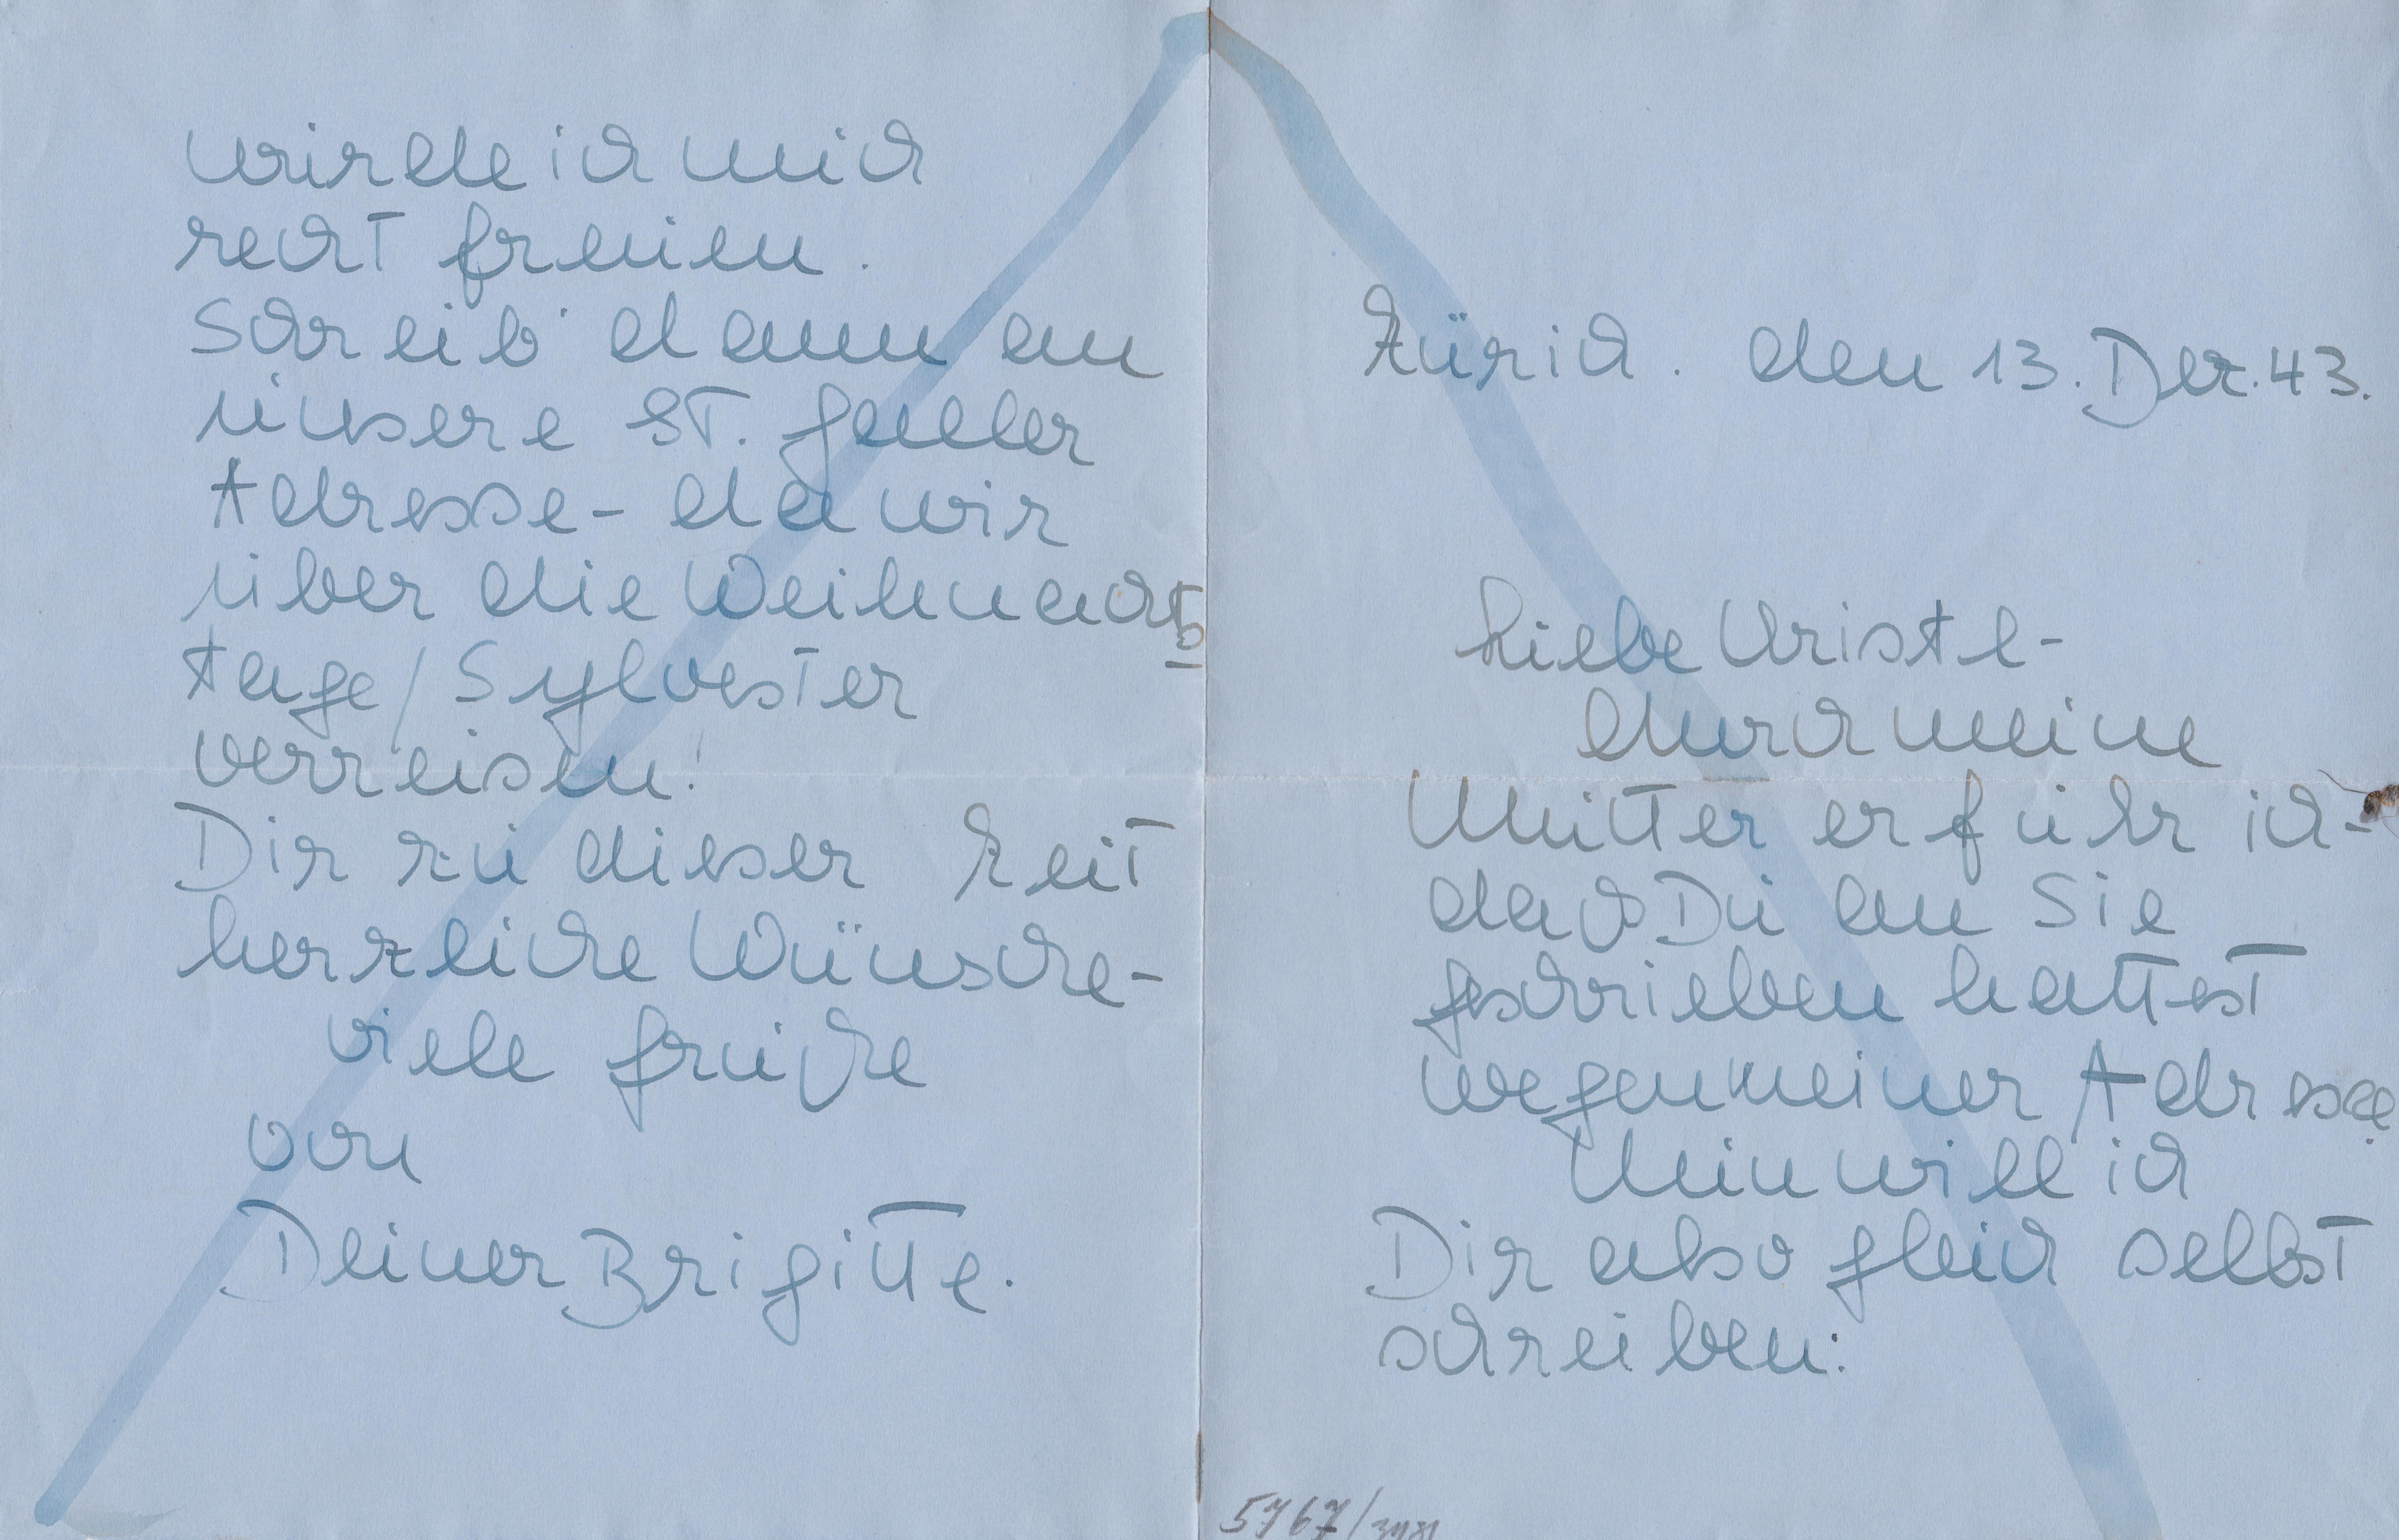 Zürich. den 13. Dez. 43.
Liebe
durch meine
Mutter erfuhr ich-
daß Du an Sie
geschrieben hattest
wegen meiner Adresse.
Nun will ich
Dir also gleich selbst
schreiben:
5767/
würde ich mich
recht freuen.
Schreib' dann an
unsere ST. Galler
Adresse- da wir
über die Weihnachts
tage/Sylvester
verreisen!
Dir zu dieser Zeit
herzliche Wünsche-
viele Grüße
von
Deiner Brigitte.